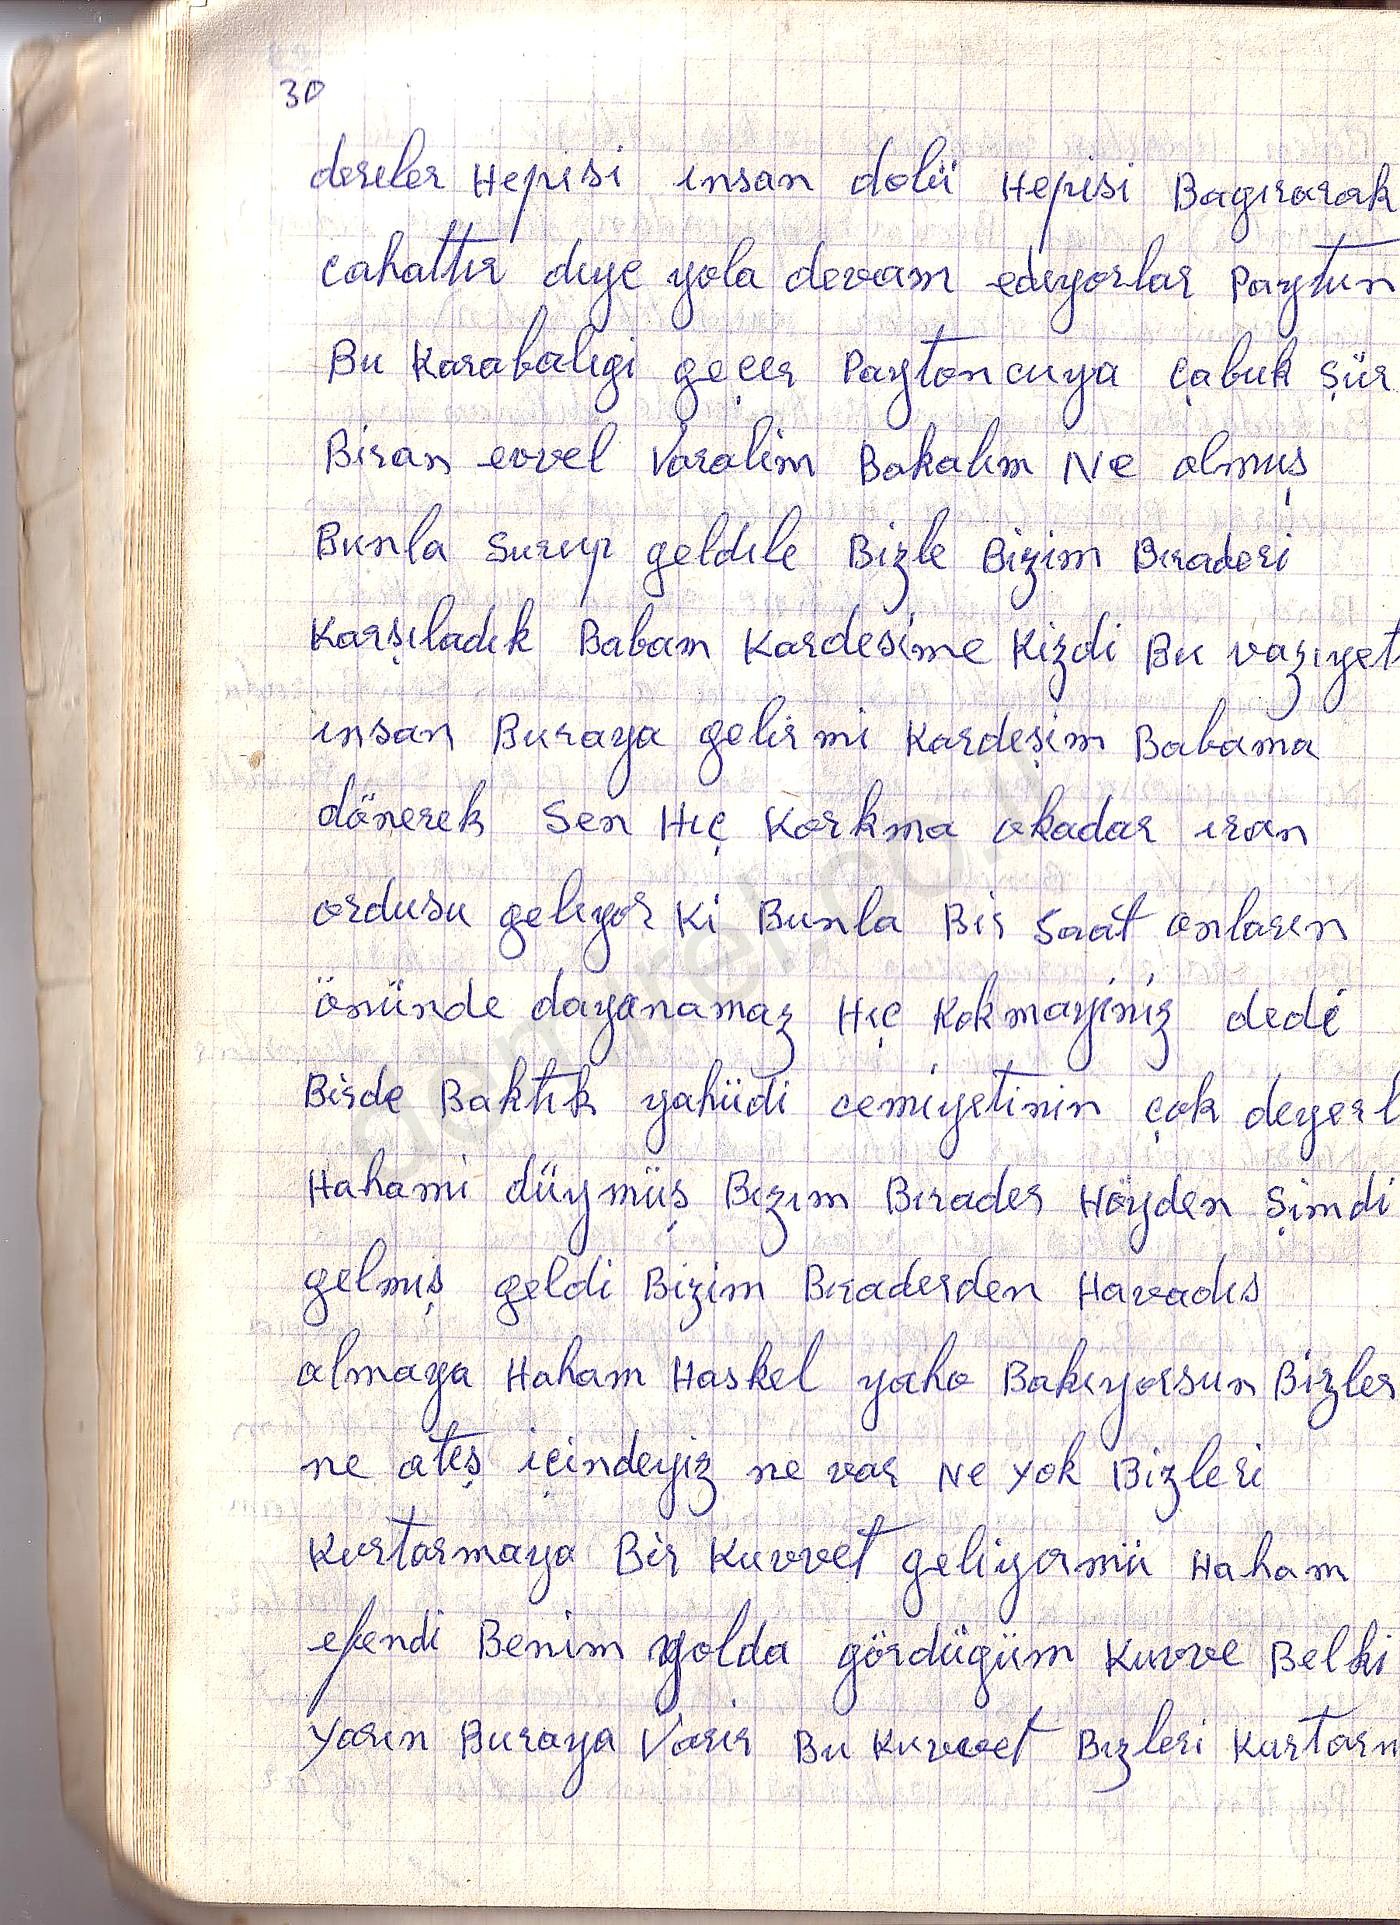 30
dereler Hepisi ınsan dolü Hepisi Bagırarak
cahattır dıye yola devam edıyorlar Paytun
Bu Karabalıgi geçer Paytoncuya çabuk şür
Biran evvel Varalim Bakalım Ne olmuş
Bunla Surup geldıle Bizle Bizim Bıraderi
Karşıladık Babam Kardesime Kizdi Bu vazıyet
ınsan Buraya gelir mi Kardeşim Babama
dönerek Sen Hıç Korkma okadar ıran
ordusu gelıyor Ki Bunla Bir Saat onların
önünde dayanamaz Hıç Kokmayiniz dedi
Birde Baktık yahüdi cemiyetinin çok deyerl
Hahami düymüş Bızım Bırader Höyden Şimdi
gelmış geldi Bizim Bıraderden Havadıs
almaya Haham Haskel yaho Bakıyorsun Bizler
ne ateş içindeyiz ne var Ne yok Bizleri
Kurtarmaya Bir Kuvvet geliyormü Haham
efendi Benim yolda gördügüm Kuvve Belki
Yarın Buraya Varır Bu Kuvvet Bızleri Kurtarm
demirel.co.il